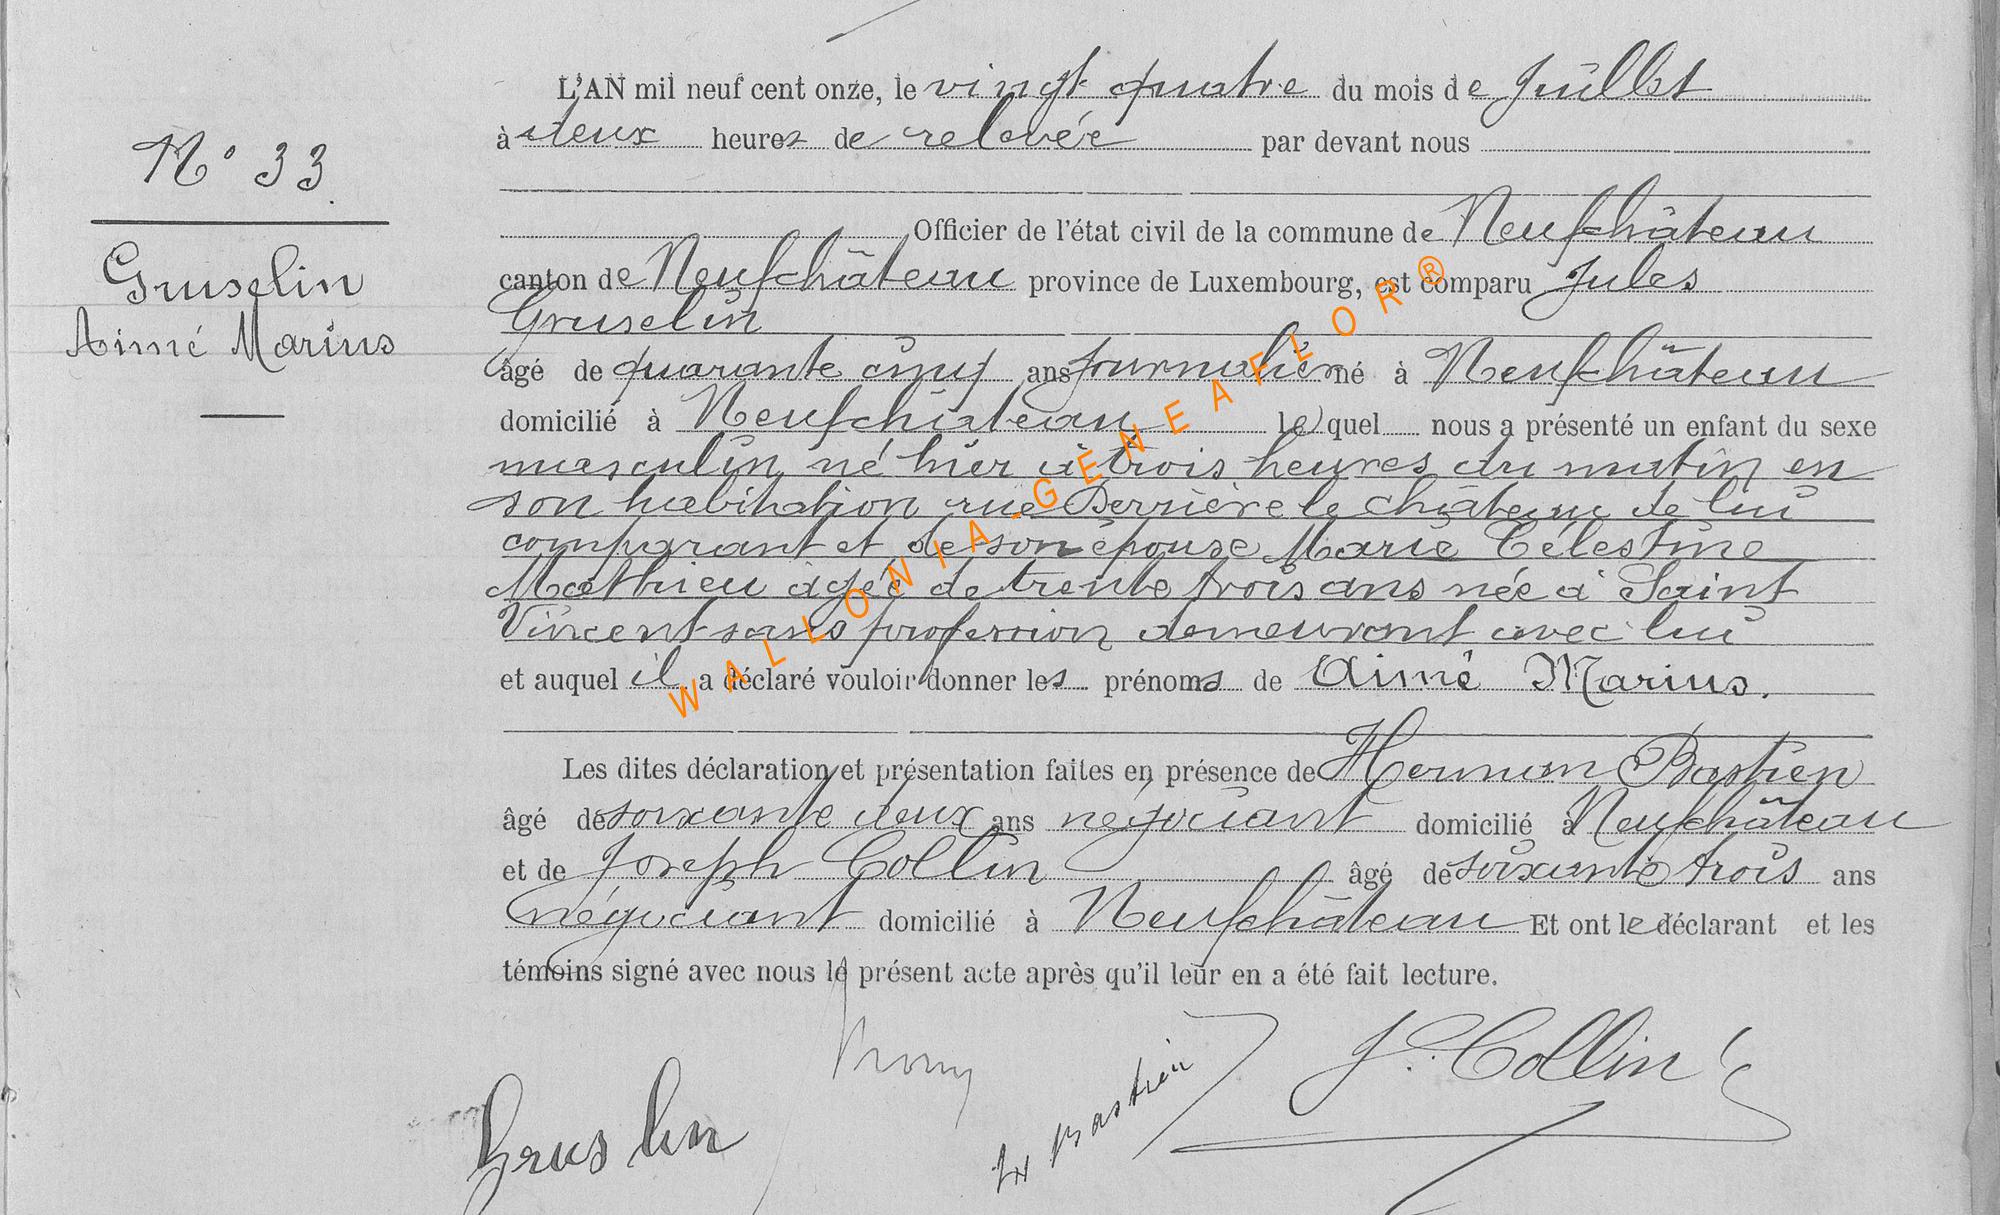 N° 33
Gruselin
Aimé Marius
L'AN mil neuf cent onze, le vingt quatre du mois de Juillet
à deux heures de relevée par devant nous
Officier de l'état civil de la commune de Neufchâteau
canton de Neufchâteau province de Luxembourg, est comparu Jules
Gruselin
âgé de quarante cinq ans journalier né à Neufchâteau
domicilié à Neufchâteau lequel nous a présenté un enfant du sexe
masculin né hier à trois heures du matin en
son habitation rue Derrière le château de lui
comparant et de son épouse Marie Célestine
Mathieu âgée de trente trois ans née à Saint
Vincent sans profession demeurant avec lui
et auquel il a déclaré vouloir donner les prénoms de Aimé Marius.
Les dites déclaration et présentation faites en présence de Herman Bastien
âgé de soixante deux ans négociant domicilié à Neufchâteau
et de Joseph Collin âgé de soixante trois ans
négociant domicilié à Neufchâteau Et ont le déclarant et les
témoins signé avec nous le présent acte après qu'il leur en a été fait lecture.
Gruslin
Bastien
J. Collin
WALLONIA-GENEAFLOR®